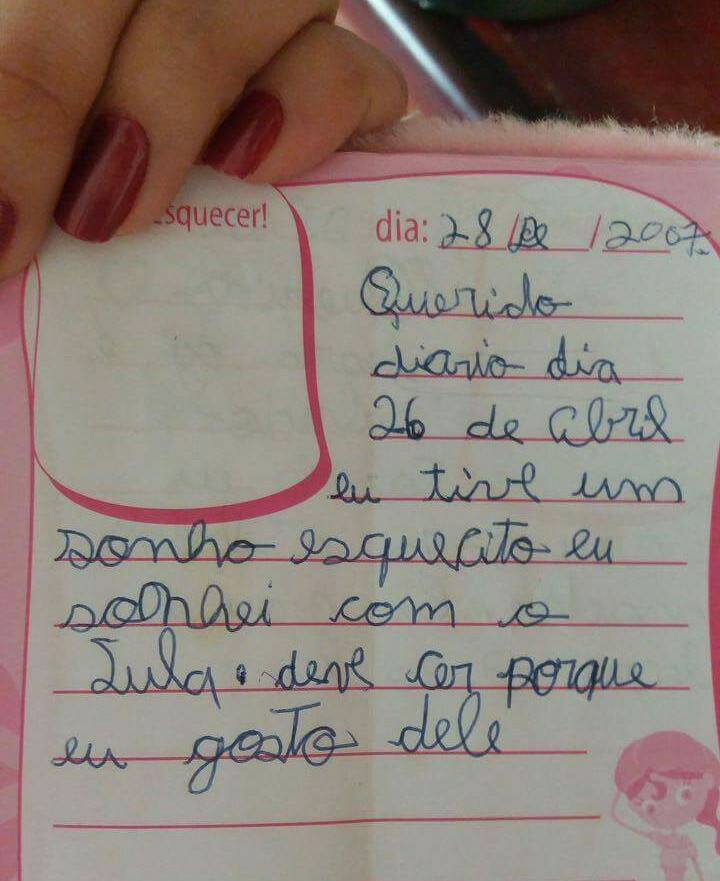 squecer!
dia: 28 / / 2007
Querido
diario dia
26 de abril
eu tive um
sonho esquecito eu
sonhei com o
Lula. deve cer porque
eu gosto dele